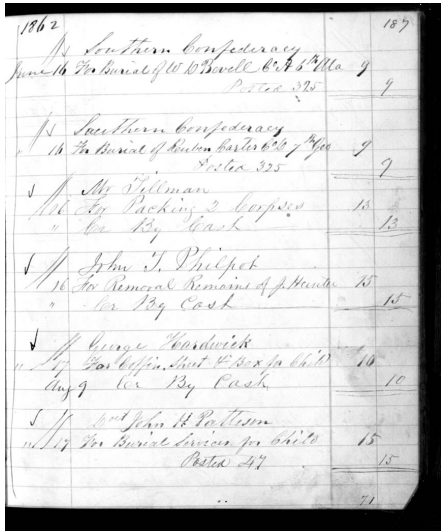 1862 187
Southern Confederacy
June 16 For Burial of W W Bevell Co A 6th Ala 9
Posted 325 9
Southern Confederacy
16 For Burial of Reuben Carter Co 7th Geo 9
Posted 325 9
Mr Tillman
16 For Packing 2 Corpses 13
" Cr By Cash 13
John T. Philpot
16 For Removal Remains of J. Hunter 15
" Cr By Cash 15
George Hardwick
" 17 For Coffin, Shert & Box for Child 10
Aug 9 Cr By Cash 10
John H Pattison
" 17 For Burial Services for Child 15
Posted 47 15
71